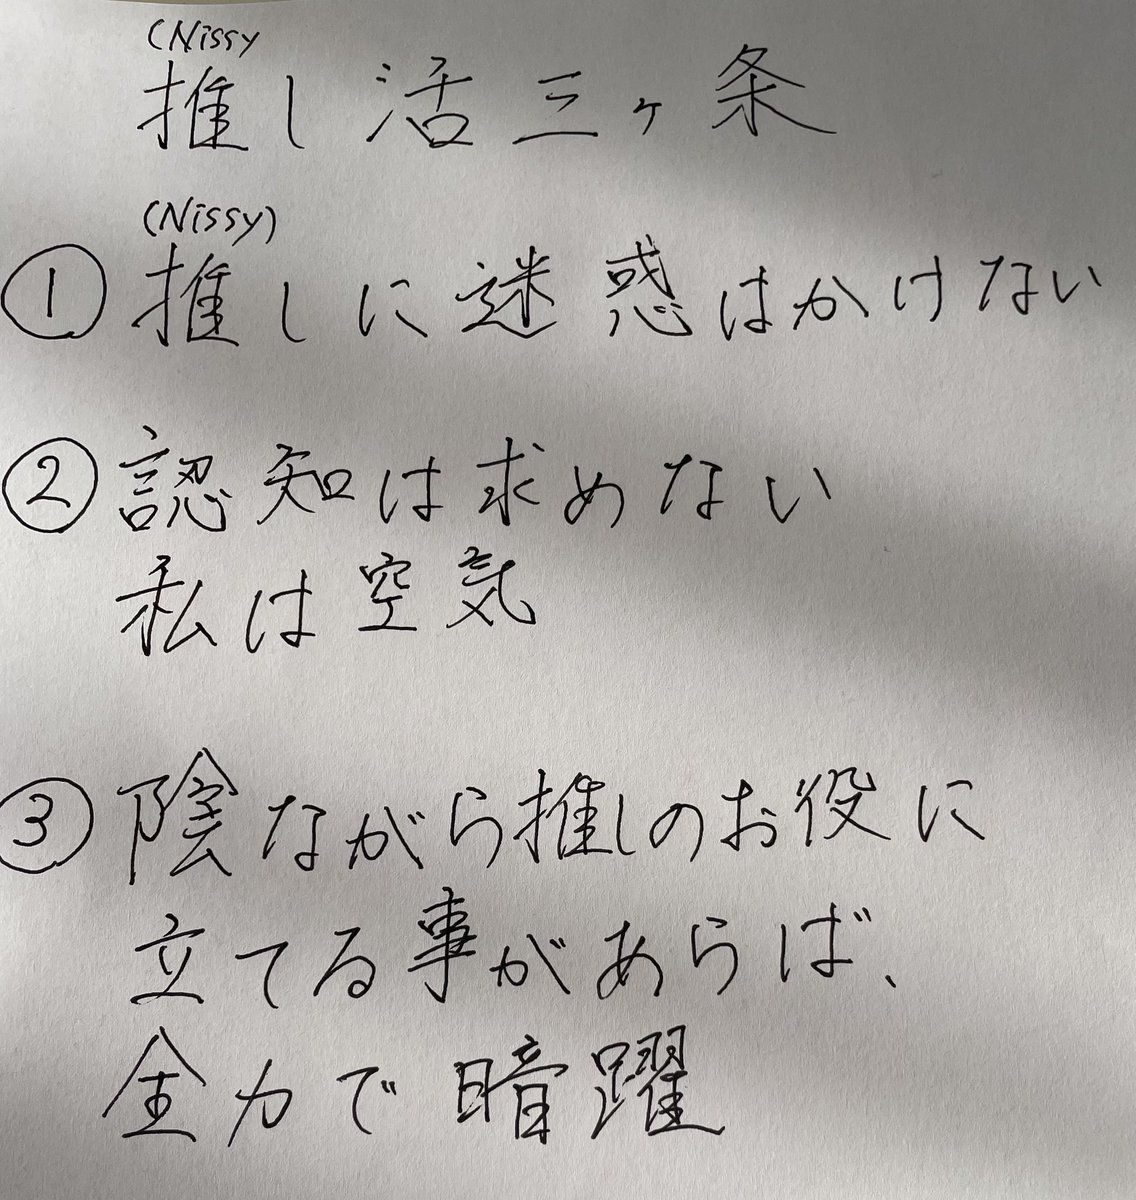 (Nissy
推し活三ヶ条
(Nissy)
①推しに迷惑はかけない
②認知は求めない
私は空気
③陰ながら推しのお役に
立てる事があらば、
全力で暗躍